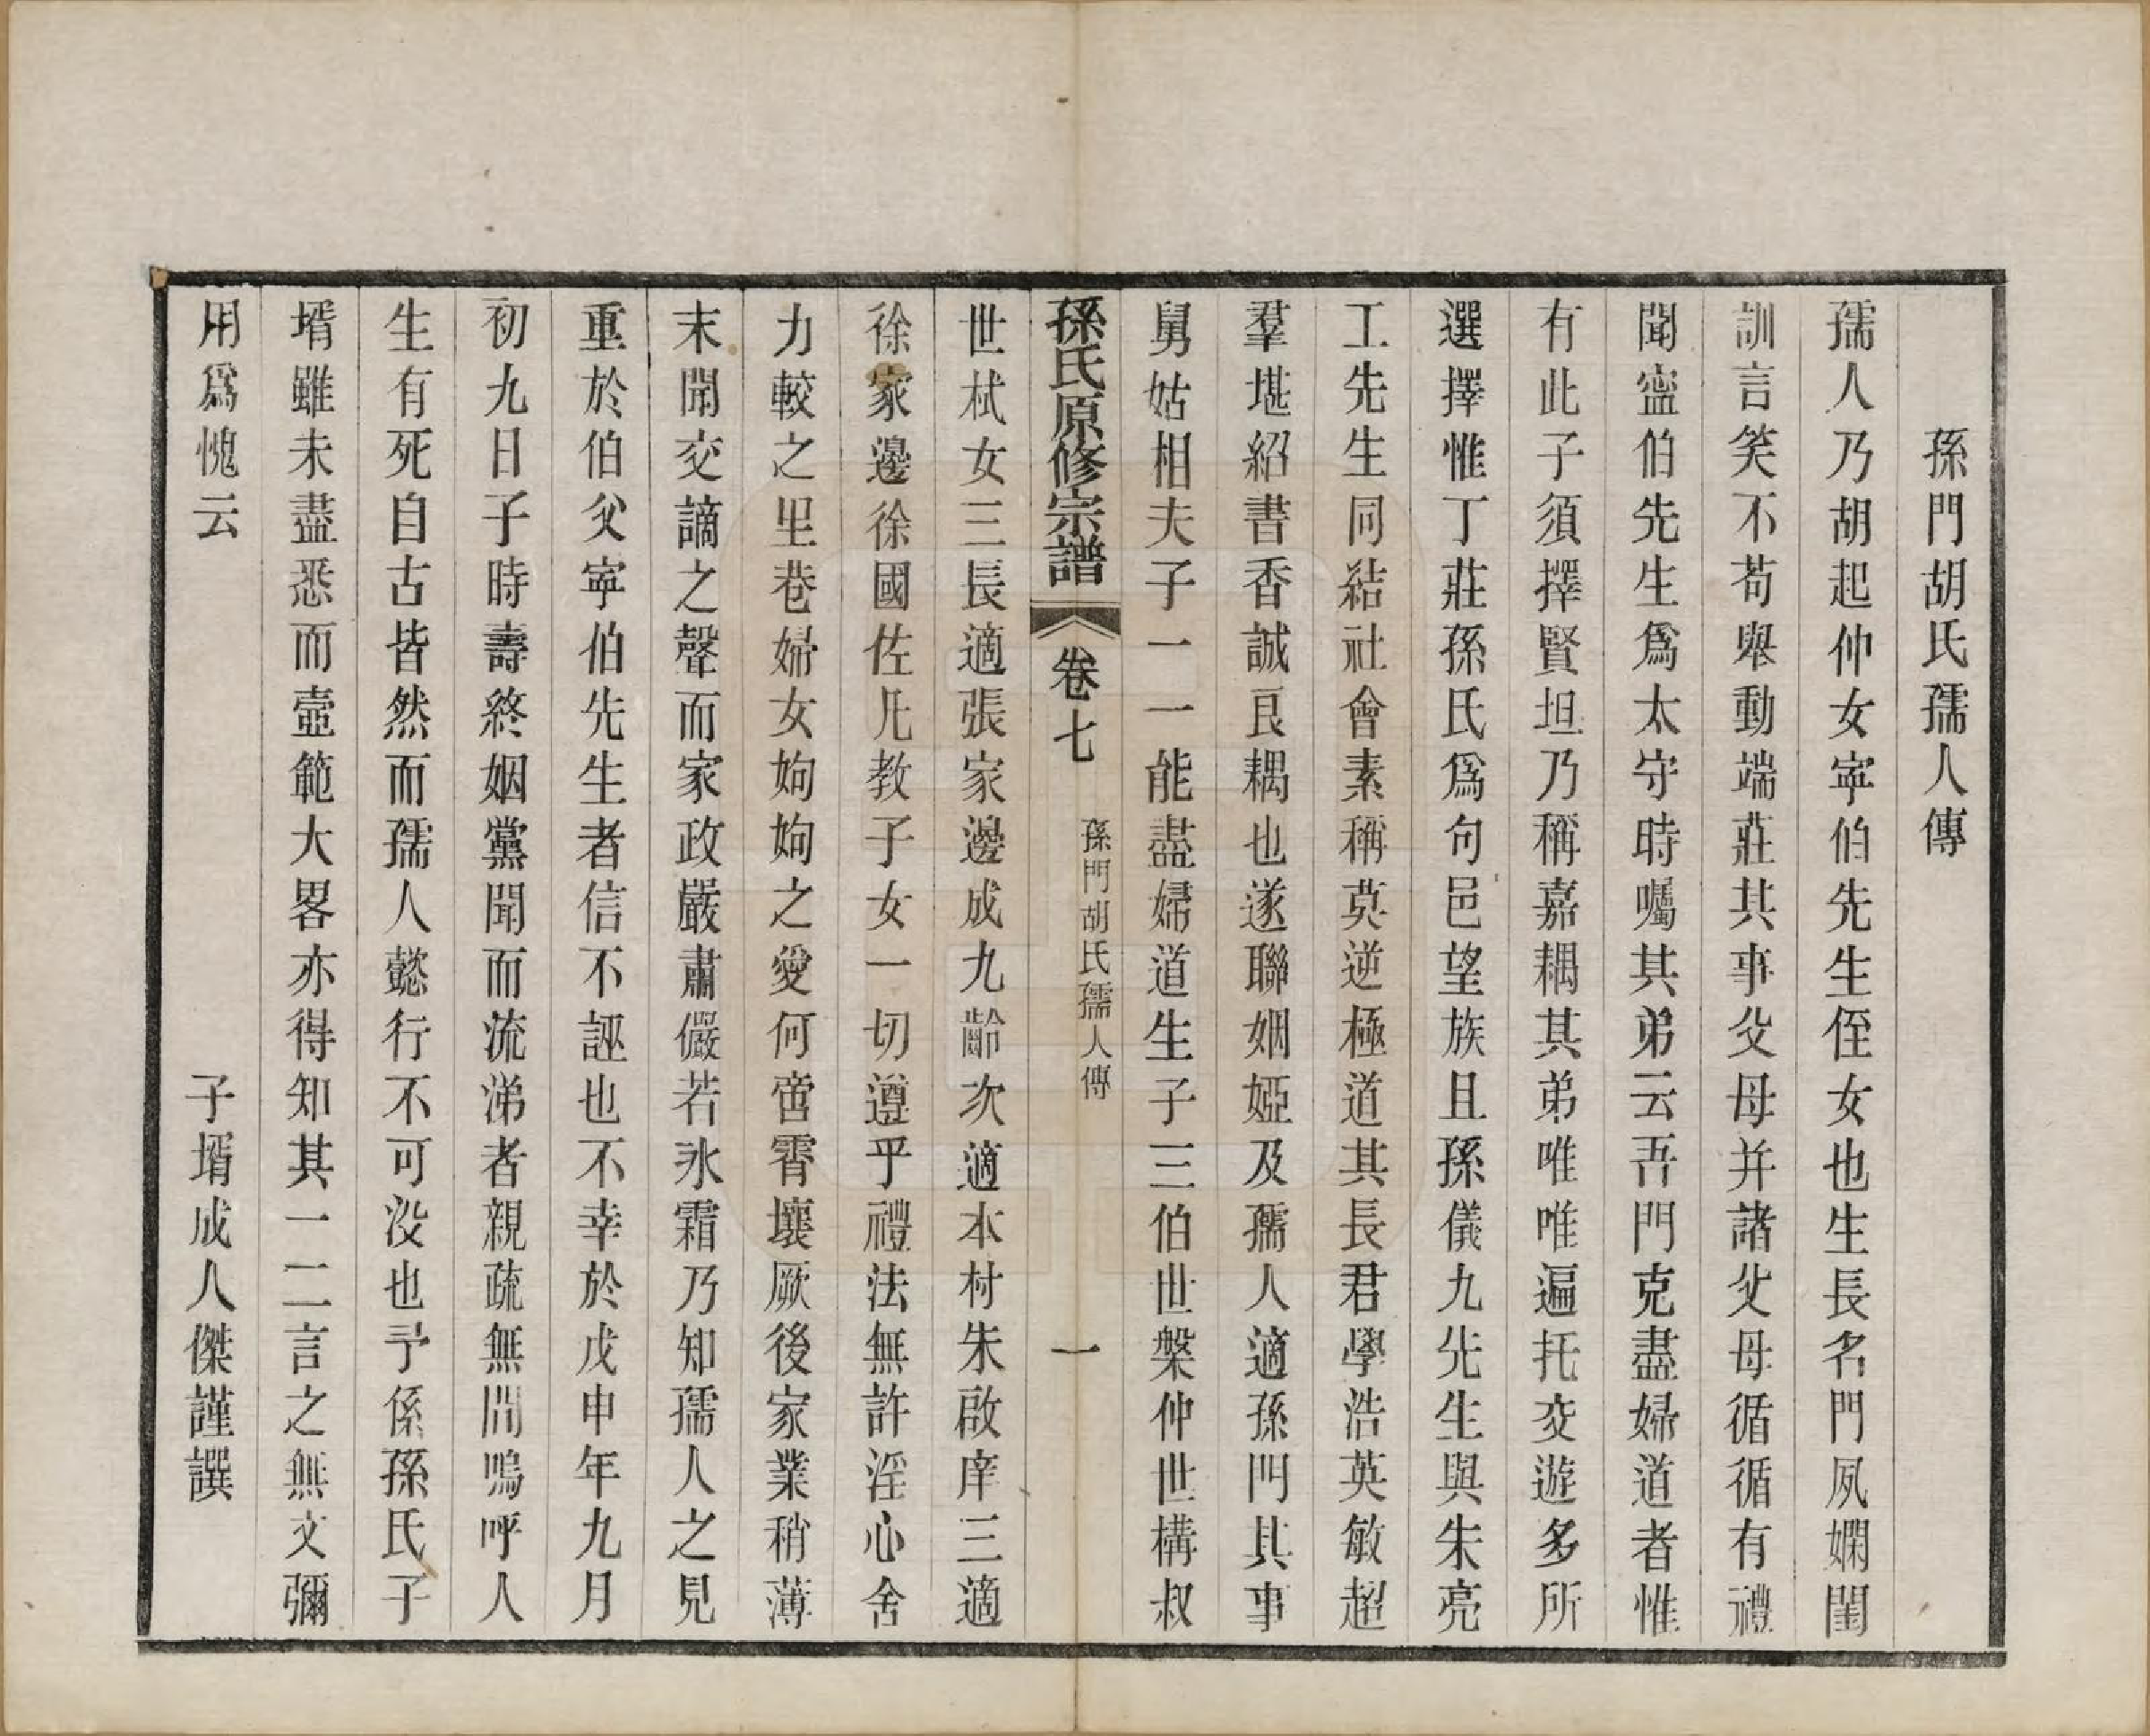 孫門胡氏孺人傳
孺人乃胡起仲女寧伯先生侄女也生長名門夙嫻閨
訓言笑不苟舉動端莊其事父母并諸父母循循有禮
聞寍伯先生爲太守時囑其弟云吾門克盡婦道者惟
有此子須擇賢坦乃稱嘉耦其弟唯唯遍托交遊多所
選擇惟丁莊孫氏爲句邑望族且孫儀九先生與朱亮
工先生同結社會素稱莫逆極道其長君學浩英敏超
羣堪紹書香誠良耦也遂聯姻婭及孺人適孫門其事
舅姑相夫子一一能盡婦道生子三伯世槃仲世構叔
孫氏原修宗譜 卷七 孫門胡氏孺人傳 一
世栻女三長適張家邊成九齡次適本村朱啟庠三適
徐家邊徐國佐凡教子女一切遵乎禮法無許淫心舍
力較之里巷婦女姁姁之愛何啻霄壤厥後家業稍薄
末聞交謫之聲而家政嚴肅儼若氷霜乃知孺人之見
重於伯父寧伯先生者信不誣也不幸於戊申年九月
初九日子時壽終姻黨聞而流涕者親疏無間嗚呼人
生有死自古皆然而孺人懿行不可没也予係孫氏子
壻雖未盡悉而壼範大畧亦得知其一二言之無文彌
用爲愧云
子壻成人傑謹譔